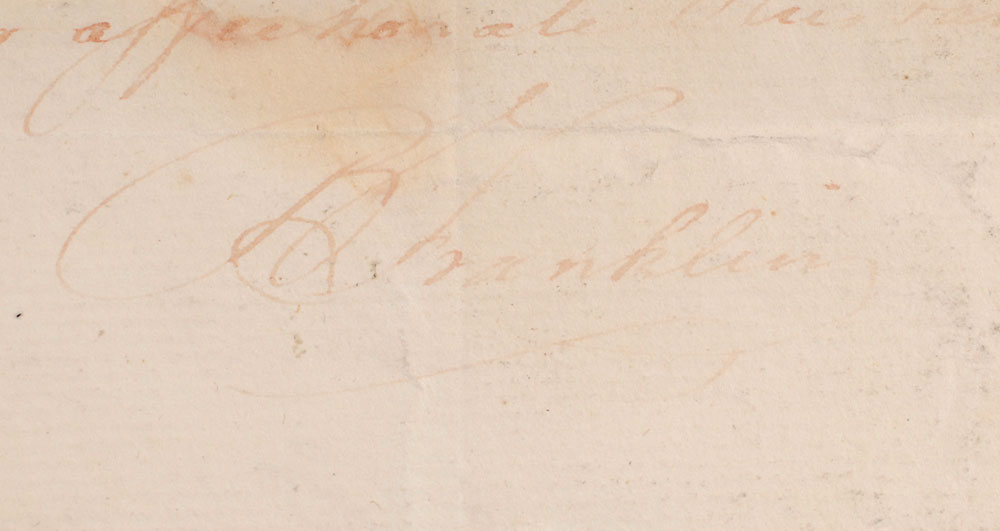 affectionate Hus
B Franklin